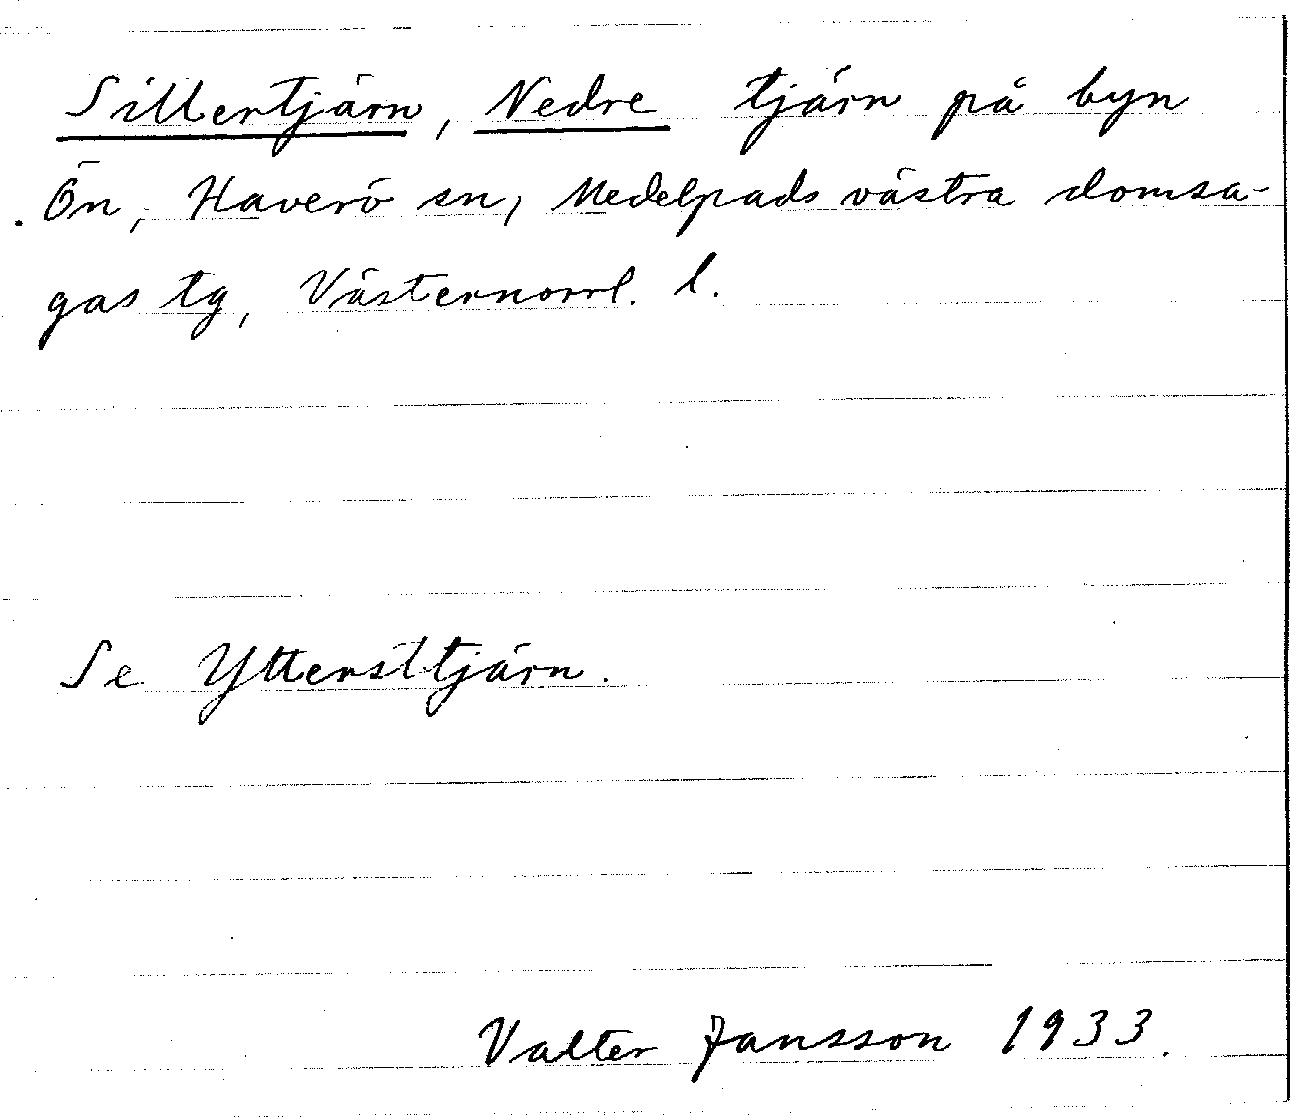 Sillertjärn, Nedre tjärn på byn
Ön, Haverö sn, Medelpads västra domsa-
gas tg, Västernorrl. l.
Se Yttersttjärn.
Valter Jansson 1933.